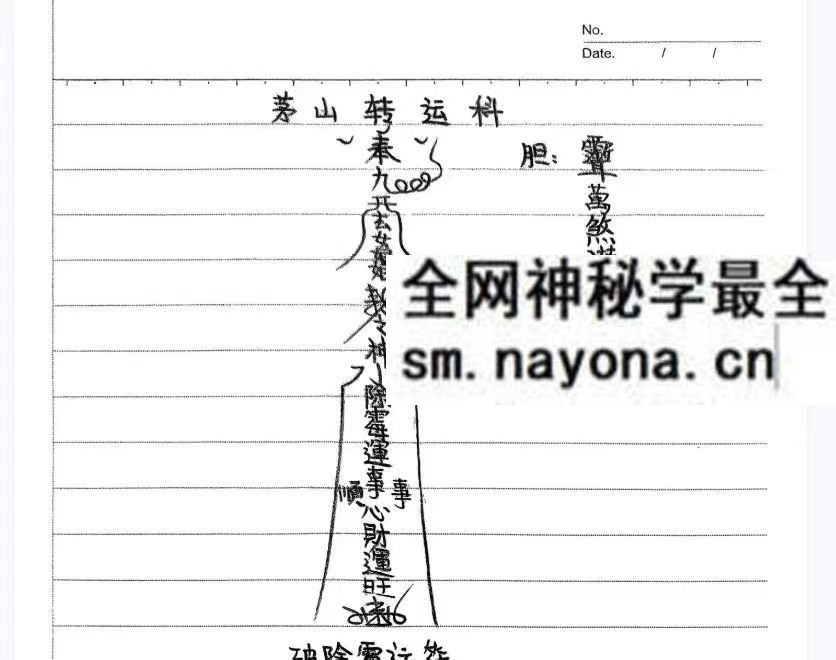 No.
Date. / /
茅山转运科
奉
九
天
玄
女
敕
令
神
除
霉
運
事
順 事
心
財
運
旺
来
胆:
萬
煞
全网神秘学最全
sm.nayona.cn
破除霉运符